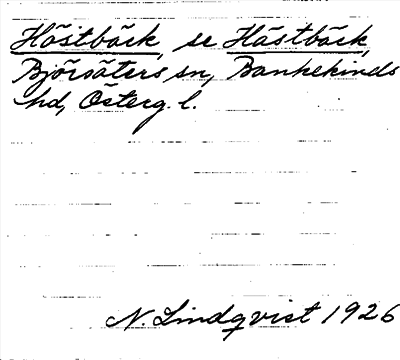 Höstbäck, se Hästbäck,
Björsäters sn, Bankekinds
hd, Österg. l.
N. Lindqvist 1926